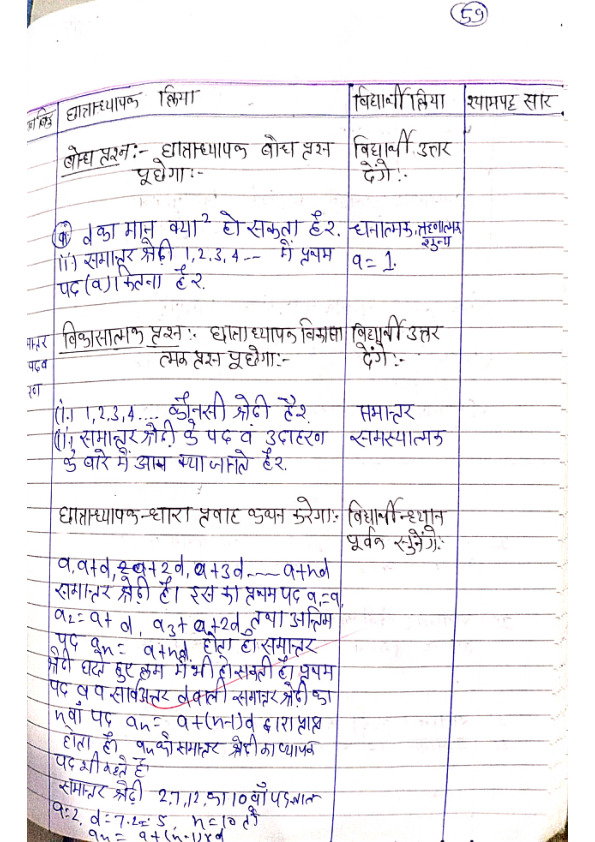 59
छात्राध्यापक क्रिया
विद्यार्थी क्रिया
श्यामपट्ट सार
बोध प्रश्न:- छात्राध्यापक बोध प्रश्न
पूछेगा:-
विद्यार्थी उत्तर
देंगे:-
d का मान क्या हो सकता है?
धनात्मक, ऋणात्मक
शून्य
(ii) समान्तर श्रेढी 1,2,3,4 -- में प्रथम
पद (a) कितना है?
a = 1.
विकासात्मक प्रश्न:- छात्राध्यापक विकासा
त्मक प्रश्न पूछेगा:-
विद्यार्थी उत्तर
देंगे:-
(i) 1,2,3,4.... कौनसी श्रेढी है?
समान्तर
(ii) समान्तर श्रेढी के पद व उदाहरण
के बारे में आप क्या जानते है?
समस्यात्मक
छात्राध्यापक धारा प्रवाह कथन करेगा:-
विद्यार्थी ध्यान
पूर्वक सुनेंगे:-
a, a+d, a+2d, a+3d ---- a+nd
समान्तर श्रेढी है। इस का प्रथम पद a₁=a,
a₂= a+d, a₃+a+2d तथा अन्तिम
पद an= a+nd होता है। समान्तर
श्रेढी घटते हुए क्रम में भी हो सकती है। प्रथम
पद a व सार्वअन्तर d वाली समान्तर श्रेढी का
nवाँ पद an= a+(n-1)d द्वारा प्राप्त
होता है। an को समान्तर श्रेढी का व्यापक
पद भी कहते है।
समान्तर श्रेढी 2,7,12, का 10वाँ पद ज्ञात
a=2, d=7-2=5 n=10 तो
an= a+(n-1)xd